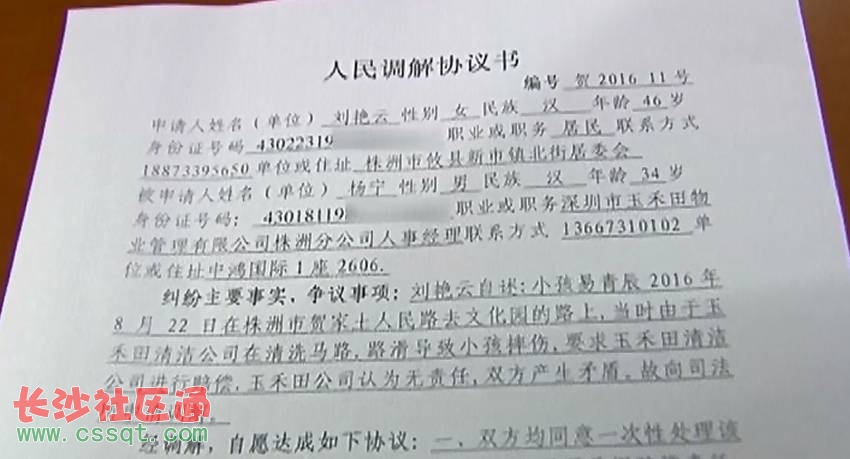 人民调解协议书
编号 贺 2016 11 号
申请人姓名（单位）刘艳云 性别 女 民族 汉 年龄 46 岁
身份证号码 43022319 职业或职务 居民 联系方式
18873395650 单位或住址 株洲市攸县新市镇北街居委会
被申请人姓名（单位）杨宁 性别 男 民族 汉 年龄 34 岁
身份证号码： 43018119 职业或职务深圳市玉禾田物
业管理有限公司株洲分公司人事经理联系方式 13667310102 单
位或住址中鸿国际 1 座 2606.
纠纷主要事实、争议事项：刘艳云自述：小孩易青辰 2016 年
8 月 22 日在株洲市贺家土人民路去文化园的路上，当时由于玉
禾田清洁公司在清洗马路，路滑导致小孩摔伤，要求玉禾田清洁
公司进行赔偿，玉禾田公司认为无责任，双方产生矛盾。故向司法
长沙社区通
www.cssqt.com
经调解，自愿达成如下协议：一、双方均同意一次性处理该